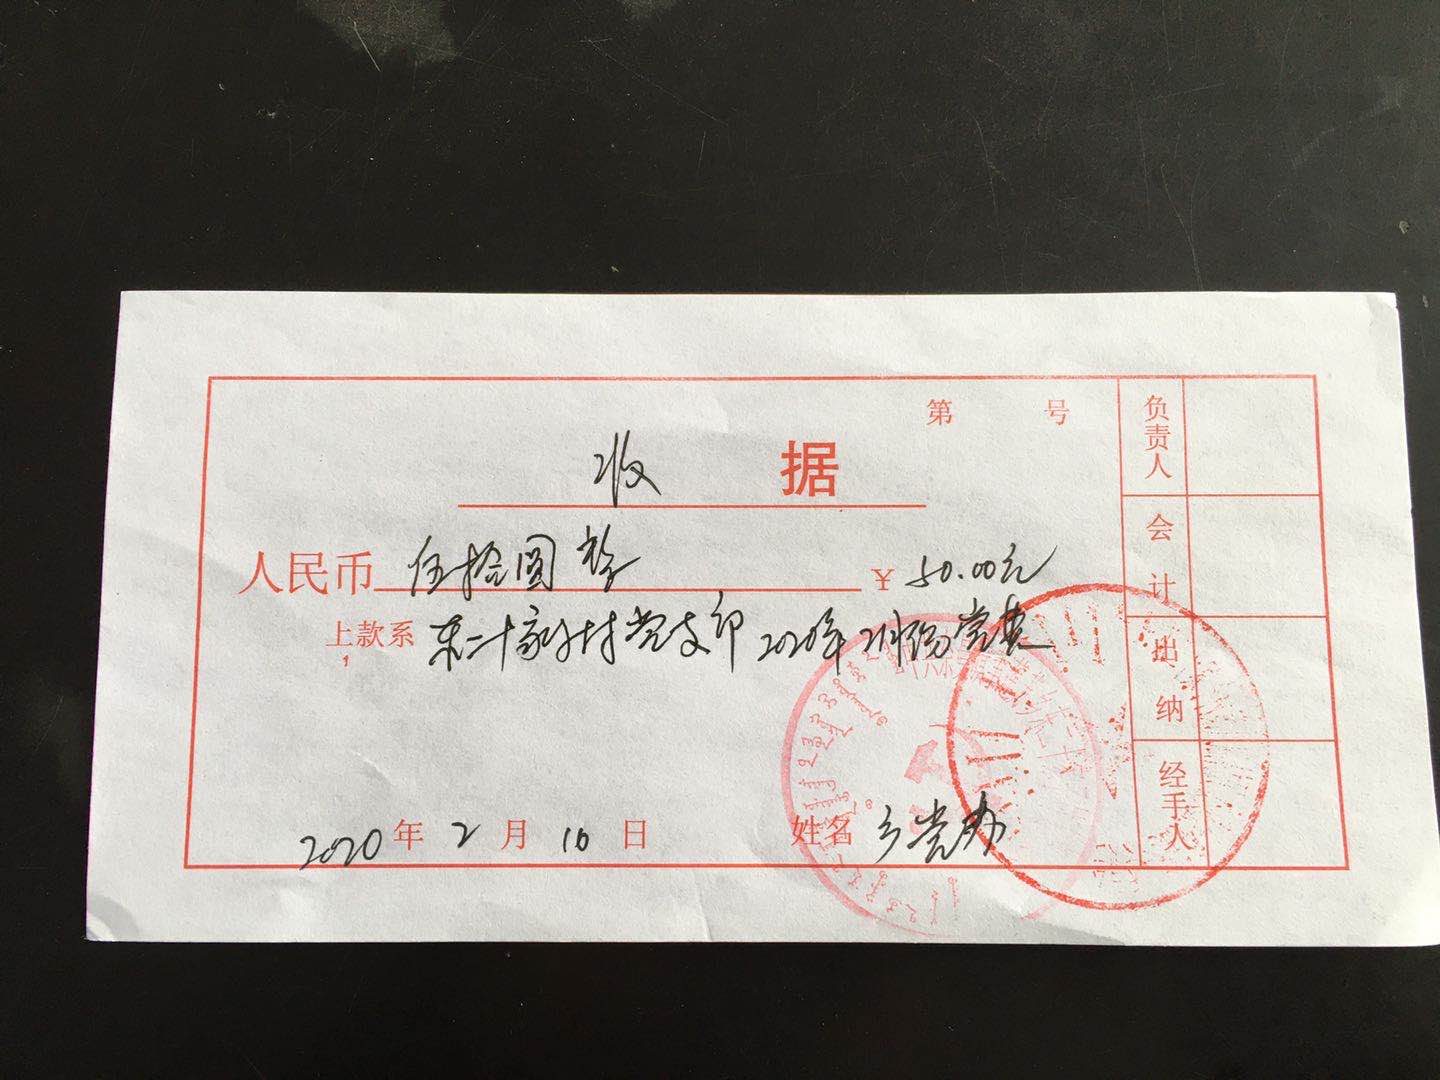 第 号
收 据
人民币 伍拾圆整 ¥ 50.00元
上款系 东二十家子村党支部 2020年2月份党费
2020年2月10日 姓名 乡党办
负责人
会计
出纳
经手人